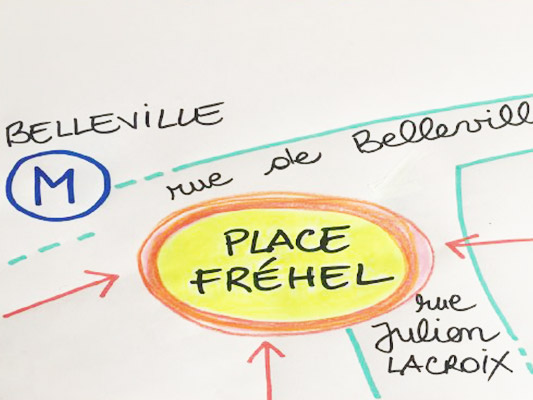 BELLEVILLE
M
rue de Bellevill
PLACE
FRÉHEL
rue
Julien
LACROIX